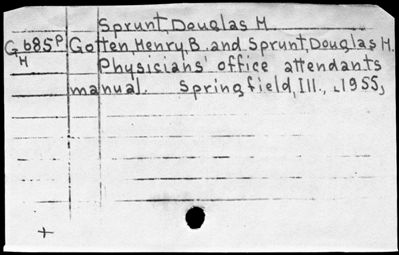 Sprunt, Douglas H.
G685P Gotten, Henry B. and Sprunt, Douglas H.
H Physicians' office attendants
manual. Springfield, Ill., 1955,
+